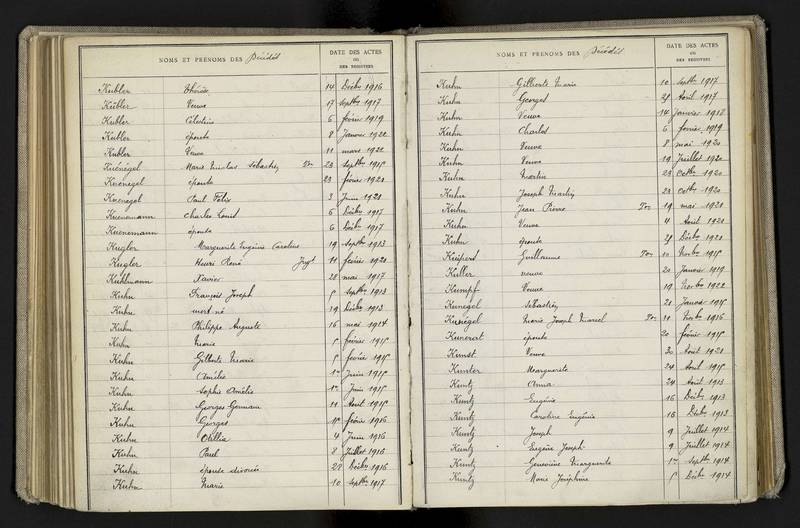 NOMS ET PRÉNOMS DES Décédés
DATE DES ACTES
OU
DES REGISTRES
Kubler Thérèse 14 Décbre 1916
Kubler Veuve 17 Septbre 1917
Kubler Célestin 6 février 1919
Kubler épouse 8 Janvier 1920
Kubler Veuve 11 mars 1922
Kuénégel Marie Nicolas Sébastien Ton 23 Septbre 1915
Kuenegel épouse 23 février 1920
Kuenegel Paul Félix 3 Juin 1920
Kuenemann Charles Louis 6 Décbre 1917
Kuenemann épouse 6 Décbre 1917
Kugler Marguerite Eugénie Caroline 19 Septbre 1913
Kugler Henri René Jugt 11 février 1920
Kuhlmann Xavier 28 mai 1917
Kuhn François Joseph 5 Septbre 1913
Kuhn mort né 19 Décbre 1913
Kuhn Philippe Auguste 16 mai 1914
Kuhn Marie 5 février 1915
Kuhn Gilberte Marie 5 février 1915
Kuhn Amélie 1er Juin 1915
Kuhn Sophie Amélie 1er Juin 1915
Kuhn Georges Germain 11 Août 1915
Kuhn Georges février 1916
Kuhn Ottillia 4 Juin 1916
Kuhn Paul 8 Juillet 1916
Kuhn épouse divorcée 28 Décbre 1916
Kuhn Marie 10 Septbre 1917
NOMS ET PRÉNOMS DES Décédés
DATE DES ACTES
OU
DES REGISTRES
Kuhn Gilberte Marie 10 Septbre 1917
Kuhn Georges 21 Avril 1917
Kuhn Veuve 14 Janvier 1918
Kuhn Charles 6 février 1919
Kuhn Veuve 8 mai 1920
Kuhn Veuve 19 Juillet 1920
Kuhn Martin 23 Octbre 1920
Kuhn Joseph Martin 23 Octbre 1920
Kuhn Jean Pierre Ton 19 mai 1921
Kuhn Veuve 4 Août 1921
Kuhn épouse 21 Décbre 1921
Kuipers Guillaume Ton 10 Novbre 1915
Kuller veuve 20 Janvier 1919
Kumpf Veuve 19 Novbre 1922
Kunegel Sébastien 21 Janvier 1915
Kunégel Marie Joseph Marcel Ton 11 Novbre 1916
Kunerat épouse 20 février 1915
Kunst Veuve 30 Août 1921
Kunter Marguerite 24 Août 1915
Kuntz Anna 24 Août 1913
Kuntz Eugénie 16 Décbre 1913
Kuntz Caroline Eugénie 16 Décbre 1913
Kuntz Joseph 9 Juillet 1914
Kuntz Eugène Joseph 9 Juillet 1914
Kuntz Geneviève Marguerite 1er Septbre 1914
Kuntz Marie Joséphine 5 Décbre 1914